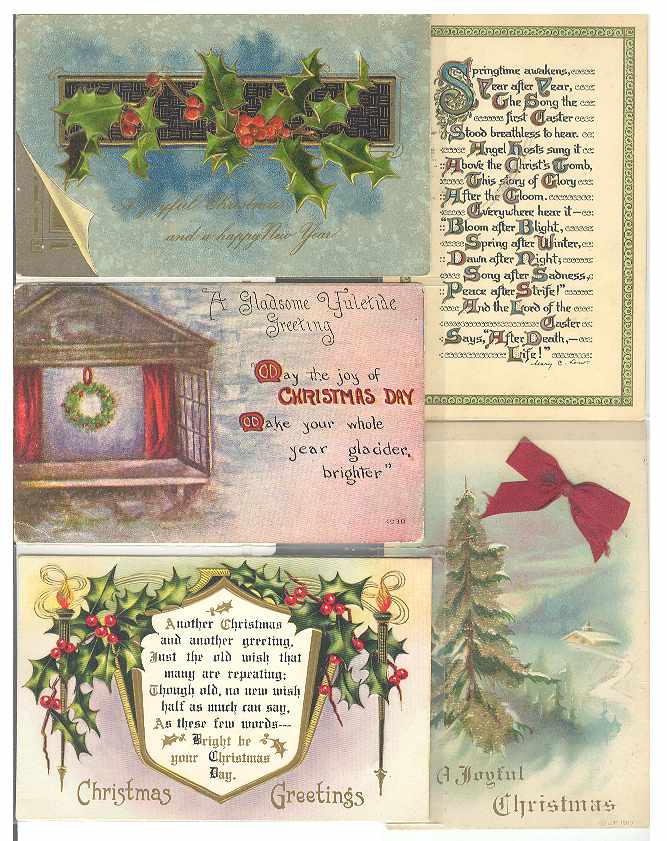 A Joyful Christmas
and a happy New Year
Springtime awakens,
Year after Year,
The Song the
first Easter
Stood breathless to hear.
Angel hosts sung it
Above the Christ's Tomb,
This story of Glory
After the Gloom.
Everywhere hear it—
"Bloom after Blight,
Spring after Winter,
Dawn after Night;
Song after Sadness,
Peace after Strife!"
And the Lord of the
Easter
Says, "After Death,—
Life!"
A Gladsome Yuletide
Greeting
"May the joy of
CHRISTMAS DAY
Make your whole
year gladder,
brighter"
4230
Another Christmas
and another greeting,
Just the old wish that
many are repeating;
Though old, no new wish
half as much can say,
As these few words---
Bright be
your Christmas
Day.
Christmas Greetings
A Joyful
Christmas